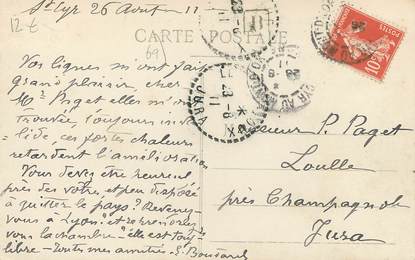 St Cyr 26 Aout 11
12 €
69
CARTE POSTALE
Vos lignes m'ont fait
grand plaisir, cher
Mr Paget elles m'ont
trouvée, toujours inva-
lide, ces fortes chaleurs
retardent l'amélioration
Vous devez être heureux
près des votre, et peu disposé
à quitter le pays? Revenez-
vous à Lyon? et reprendrez
vous la chambre? elle est tou-
libre - toutes mes amitiés - E.
Monsieur P. Paget
Loulle
près Champagnole
Jura
23-8
11
JURA
POSTES
10c